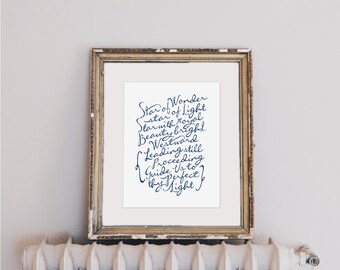 Star of Wonder
star of Light
Star with Royal
Beauty bright
Westward
Leading still
Proceeding
Guide Us to
thy Perfect
Light